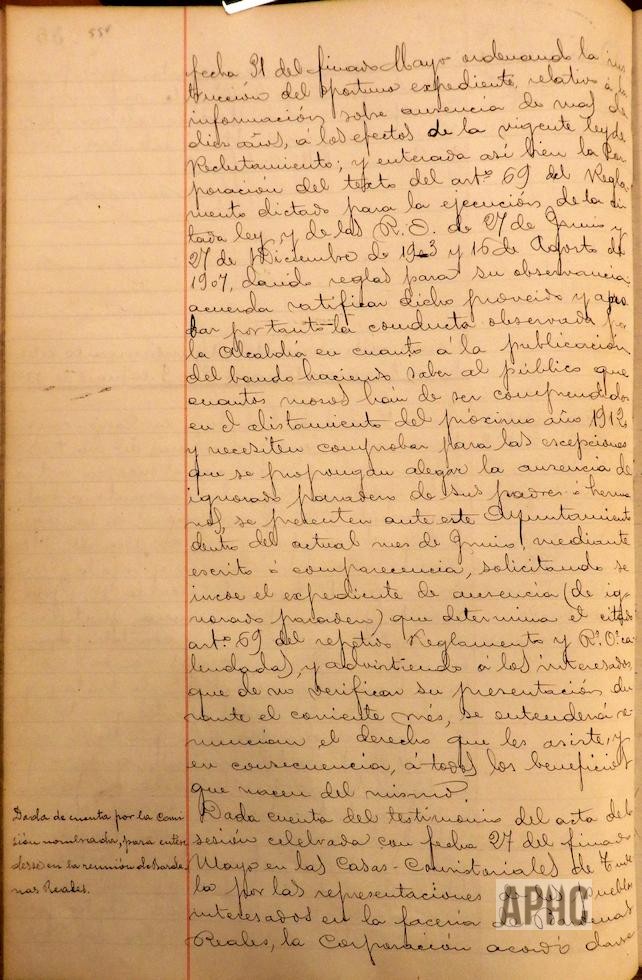 554
fecha 31 del finado Mayo ordenando la ins-
trucción del oportuno expediente, relativo á la
información sobre ausencia de mas de
diez años, á los efectos de la vigente ley de
Reclutamiento; y enterada así bien la Cor-
poración del texto del artº 69 del Regla-
mento dictado para la ejecución de la ci-
tada ley, y de las R. O. de 27 de Junio y
27 de Diciembre de 1903 y 16 de Agosto de
1907, dando reglas para su observancia,
acuerda ratificar dicho proveido y apro
bar por tanto la conducta observada por
la Alcaldía en cuanto á la publicación
del bando haciendo saber al público que
cuantos mozos han de ser comprendidos
en el alistamiento del próximo año 1912
y necesiten comprobar para las escepciones
que se propongan alegar la ausencia de
ignorado paradero de sus padres ó herma
nos, se presenten ante este Ayuntamiento
dentro del actual mes de Junio, mediante
escrito ó comparecencia, solicitando se
incoe el expediente de ausencia (de ig-
norado paradero) que determina el citado
artº 69 del repetido Reglamento y Rs. Os. ca-
lendadas, y advirtiendo á los interesados
que de no verificar su presentación du
rante el corriente més, se entenderá re-
nuncian el derecho que les asiste, y
en consecuencia, á todos los beneficios
que nacen del mismo.
Dada de cuenta por la Comi
sión nombrada, para enten
derse en la reunión de Barde
nas Reales.
Dada cuenta del testimonio del acta de
sesión celebrada con fecha 27 del finado
Mayo en las Casas-Consistoriales de Tude
la por las representaciones de los pueblos
interesados en la facería de Bardenas
Reales, la Corporación acordó darse
APHC